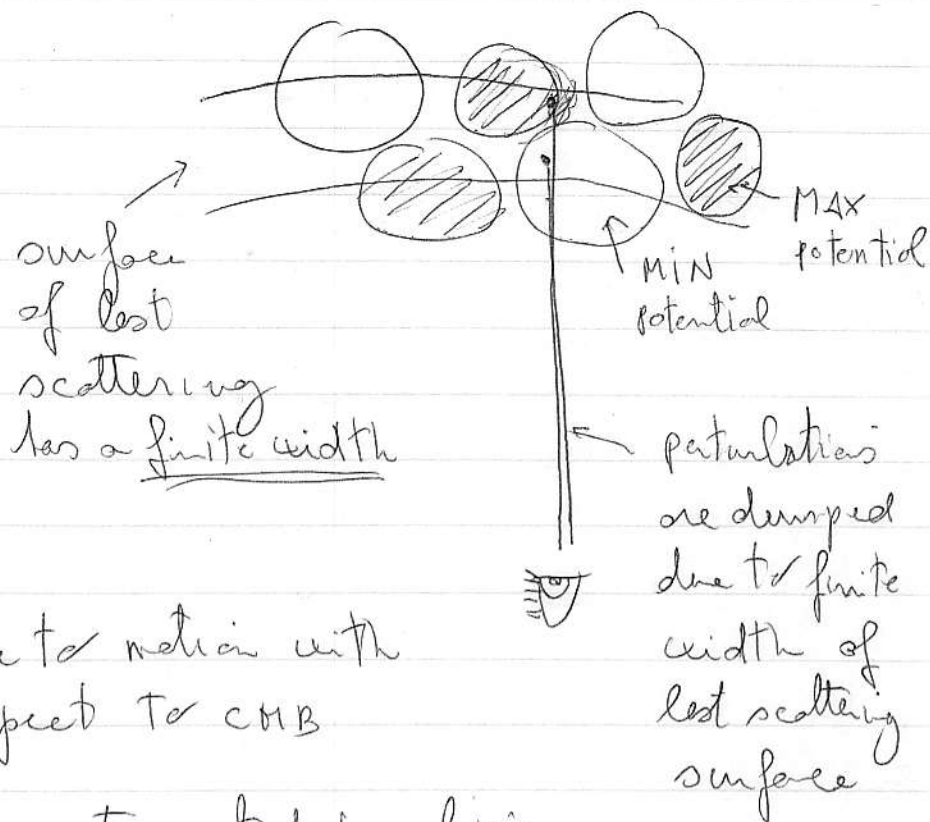 surface
of last
scattering
has a finite width
MAX
potential
MIN
potential
perturbations
are dumped
due to finite
width of
last scattering
surface
to motion with
to CMB